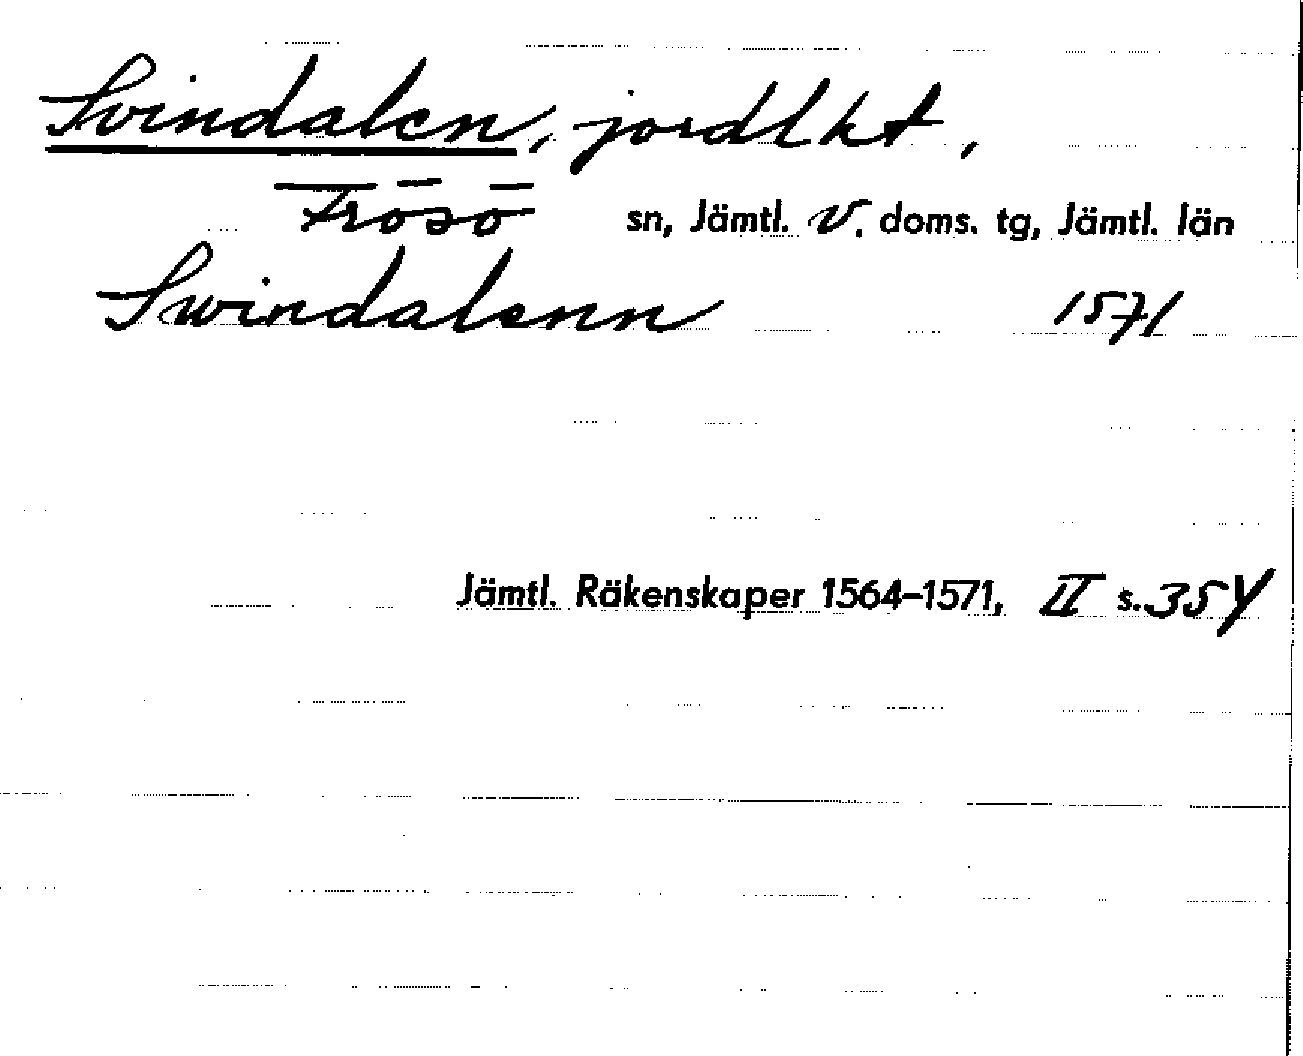 Svindalen, jordlht,
Frösö sn, Jämtl. V. doms. tg, Jämtl. län
Swindalenn 1571
Jämtl. Räkenskaper 1564–1571, II s. 354